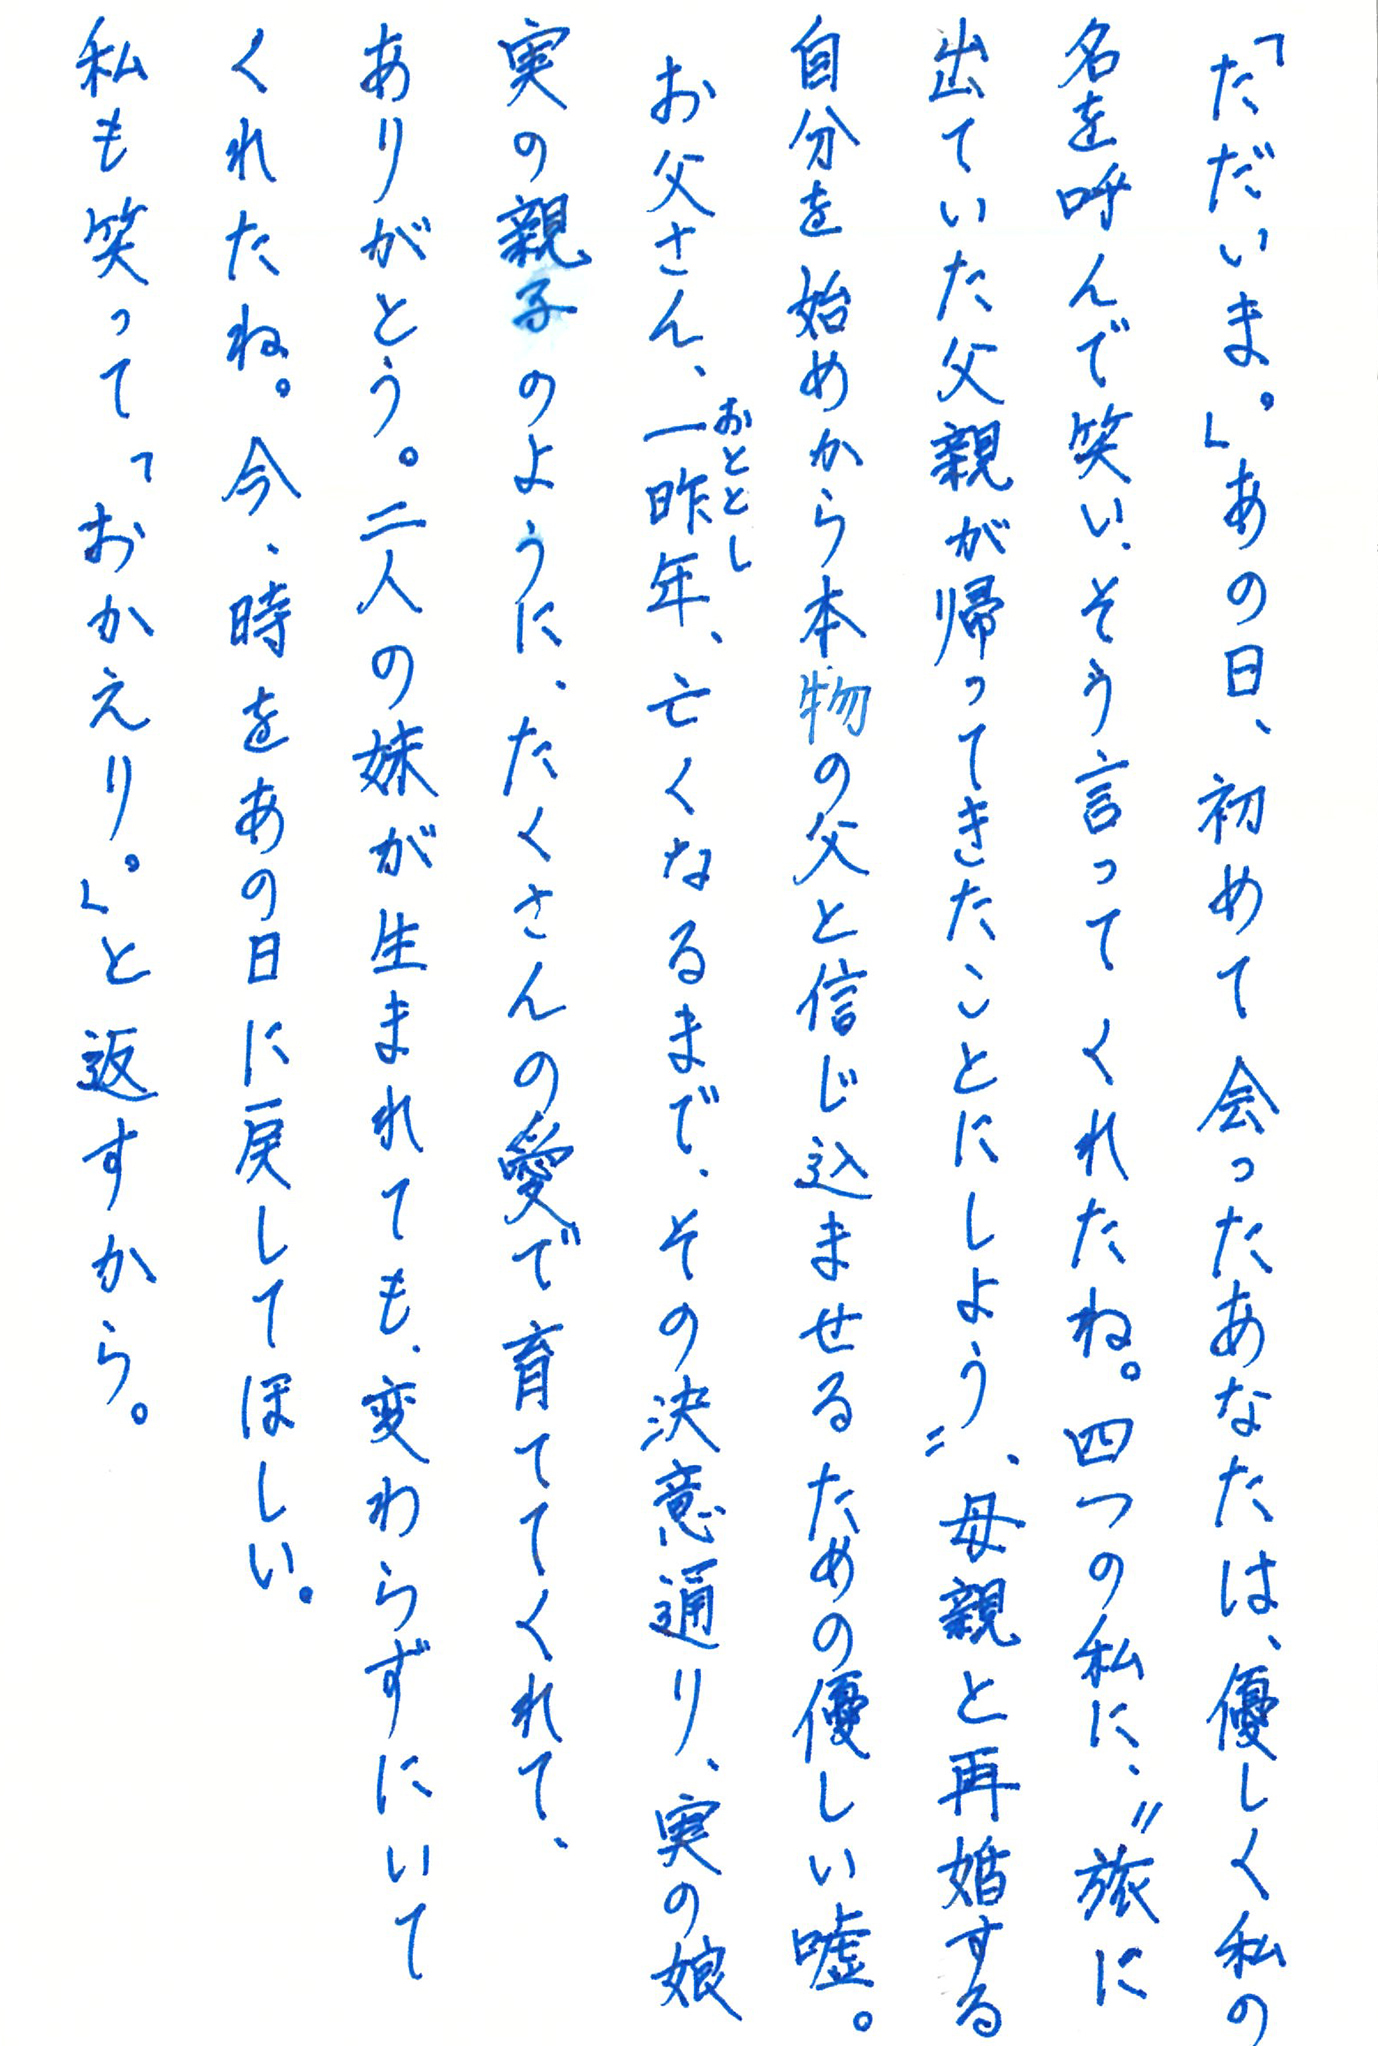 「ただいま。」あの日、初めて会ったあなたは、優しく私の
名を呼んで笑い、そう言ってくれたね。四つの私に、〝旅に
出ていた父親が帰ってきたことにしよう〟、母親と再婚する
自分を始めから本物の父と信じ込ませるための優しい嘘。
お父さん、一昨年、亡くなるまで、その決意通り、実の娘
おととし
実の親子のように、たくさんの愛で育ててくれて、
ありがとう。二人の妹が生まれても、変わらずにいて
くれたね。今、時をあの日に戻してほしい。
私も笑って「おかえり。」と返すから。